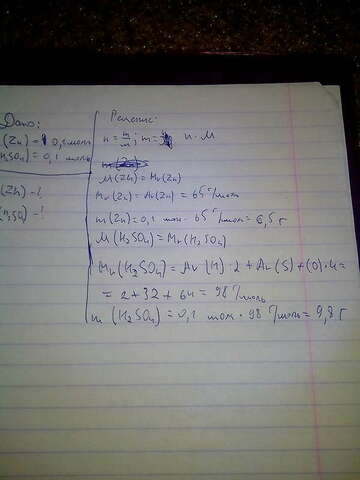 Дано:
(Zn) = 0,1 моль
H₂SO₄) = 0,1 моль
(Zn) - ?
H₂SO₄) - ?
Решение:
n = m/M; m = n · M
M(Zn) = Mr(Zn)
Mr(Zn) = Ar(Zn) = 65 г/моль
m(Zn) = 0,1 моль · 65 г/моль = 6,5 г
M(H₂SO₄) = Mr(H₂SO₄)
Mr(H₂SO₄) = Ar(H) · 2 + Ar(S) + (O) · 4 =
= 2 + 32 + 64 = 98 г/моль
m(H₂SO₄) = 0,1 моль · 98 г/моль = 9,8 г